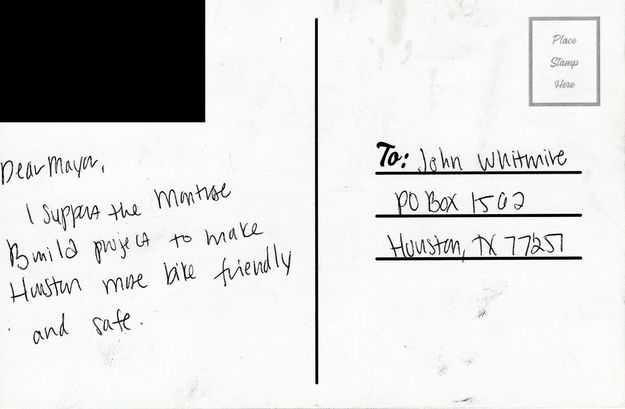 Dear Mayor,
I support the Montrose
Build project to make
Houston more bike friendly
and safe.
Place
Stamp
Here
To: John Whitmire
PO Box 1502
Houston, TX 77251